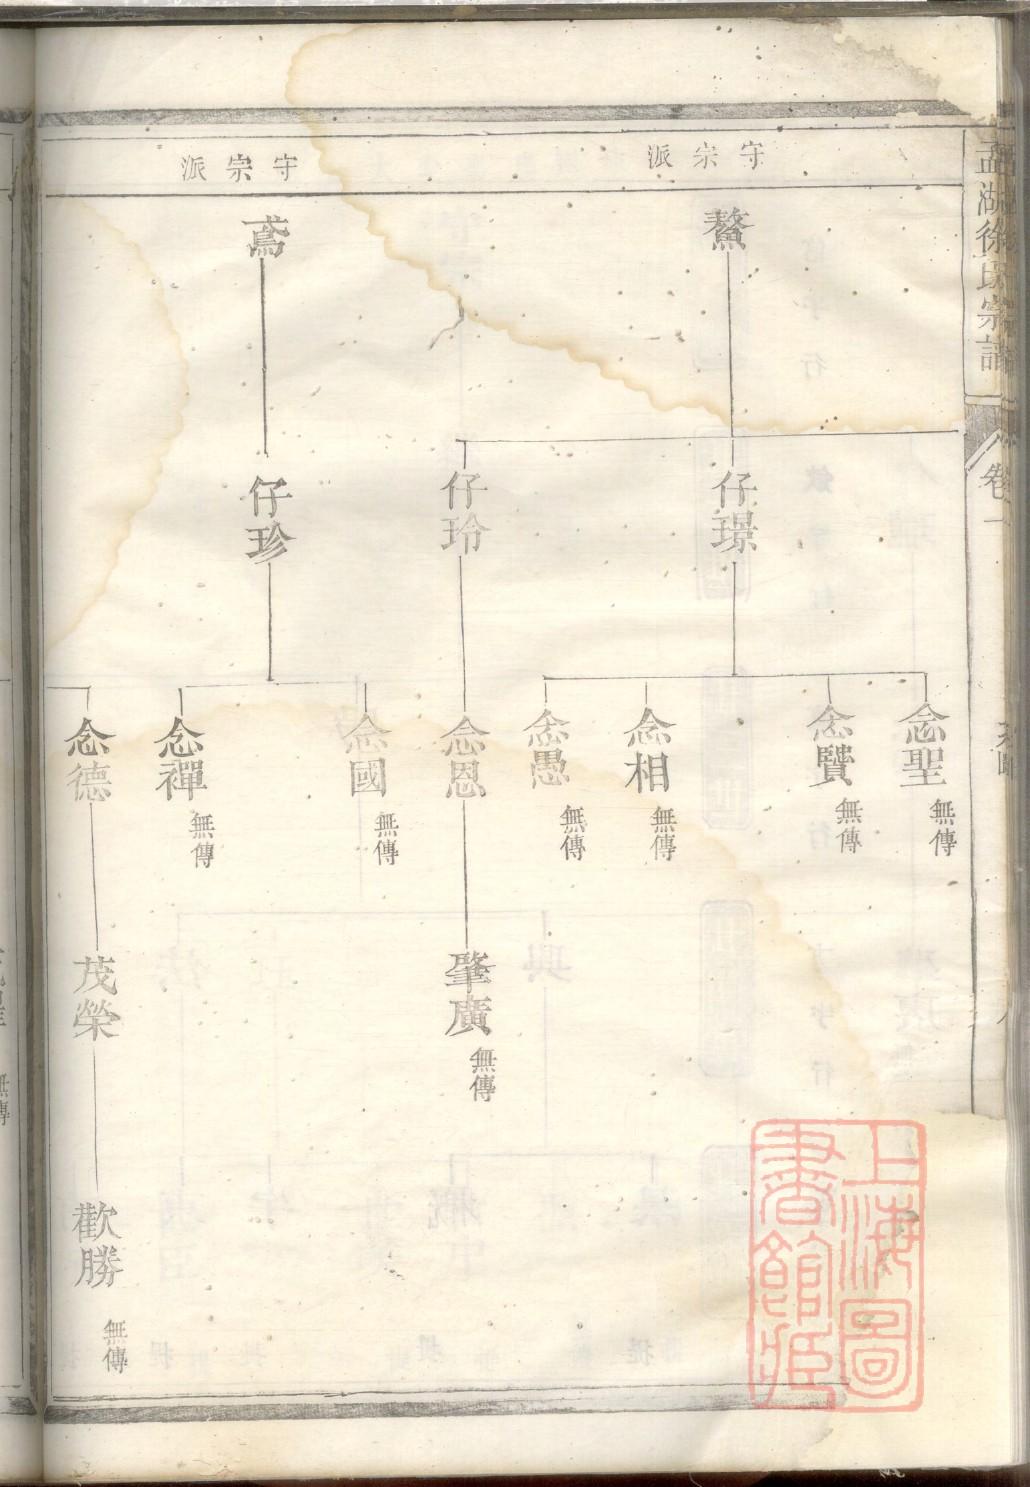 孟湖徐氏宗譜
卷一
守宗派
守宗派
鰲
鳶
仔璟
仔玲
仔珍
念聖
無傳
念賢
無傳
念相
無傳
念愚
無傳
念恩
念國
無傳
念禪
無傳
念德
肇廣
無傳
茂榮
歡勝
無傳
上海圖
書館藏